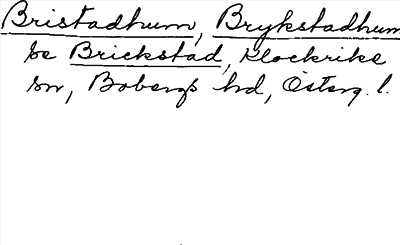 Bristadhum, Brykstadhum
se Brickstad, Klockrike
sn, Bobergs hd, Österg. l.